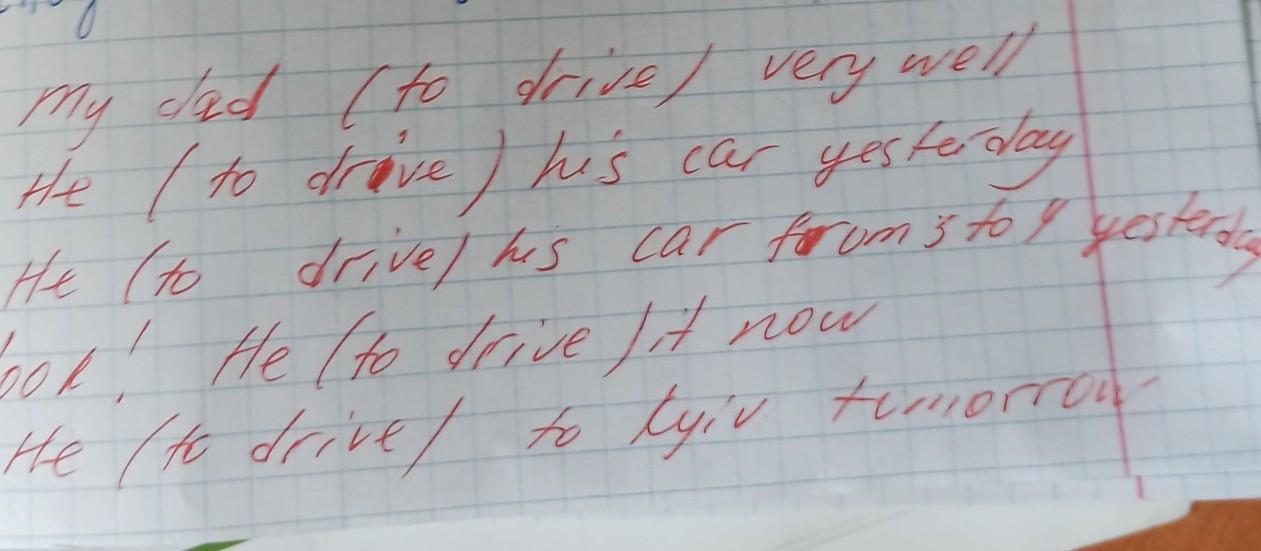 My dad (to drive) very well
He (to drive) his car yesterday
He (to drive) his car from 3 to 4 yesterday
ook! He (to drive) it now
He (to drive) to Kyiv tomorrow